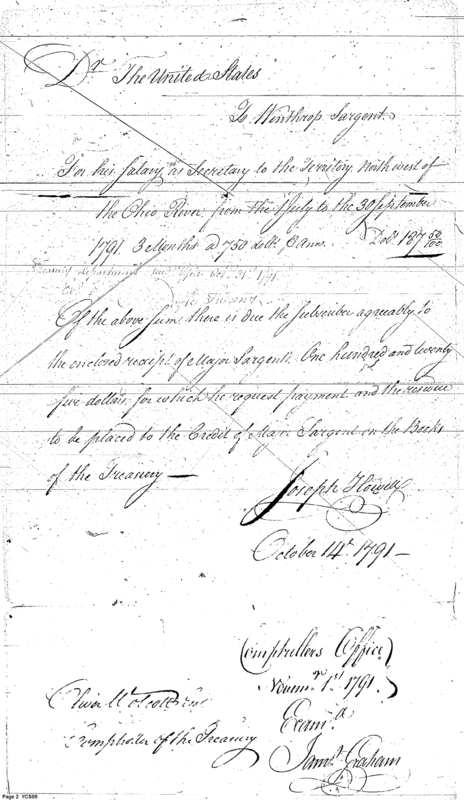 Dr. The United States
To Winthrop Sargent
For his Salary as Secretary to the Territory North west of
the Ohio River, from the 1 July to the 30 September
1791. 3 Months @ 750 dolls. P Ann. Dolrs 187 50/100
Of the above sum, there is due the subscriber agreeably to
the enclosed receipt of Major Sargent. One hundred and twenty
five dollars, for which he request payment and the residue
to be placed to the Credit of Major Sargent on the Books
of the Treasury —
Joseph Howell
October 14th 1791 —
Comptrollers Office
Novemr. 1st 1791.
Oliver Wolcott
Examd.
Comptroller of the Treasury
Graham
Page 2 YCS05